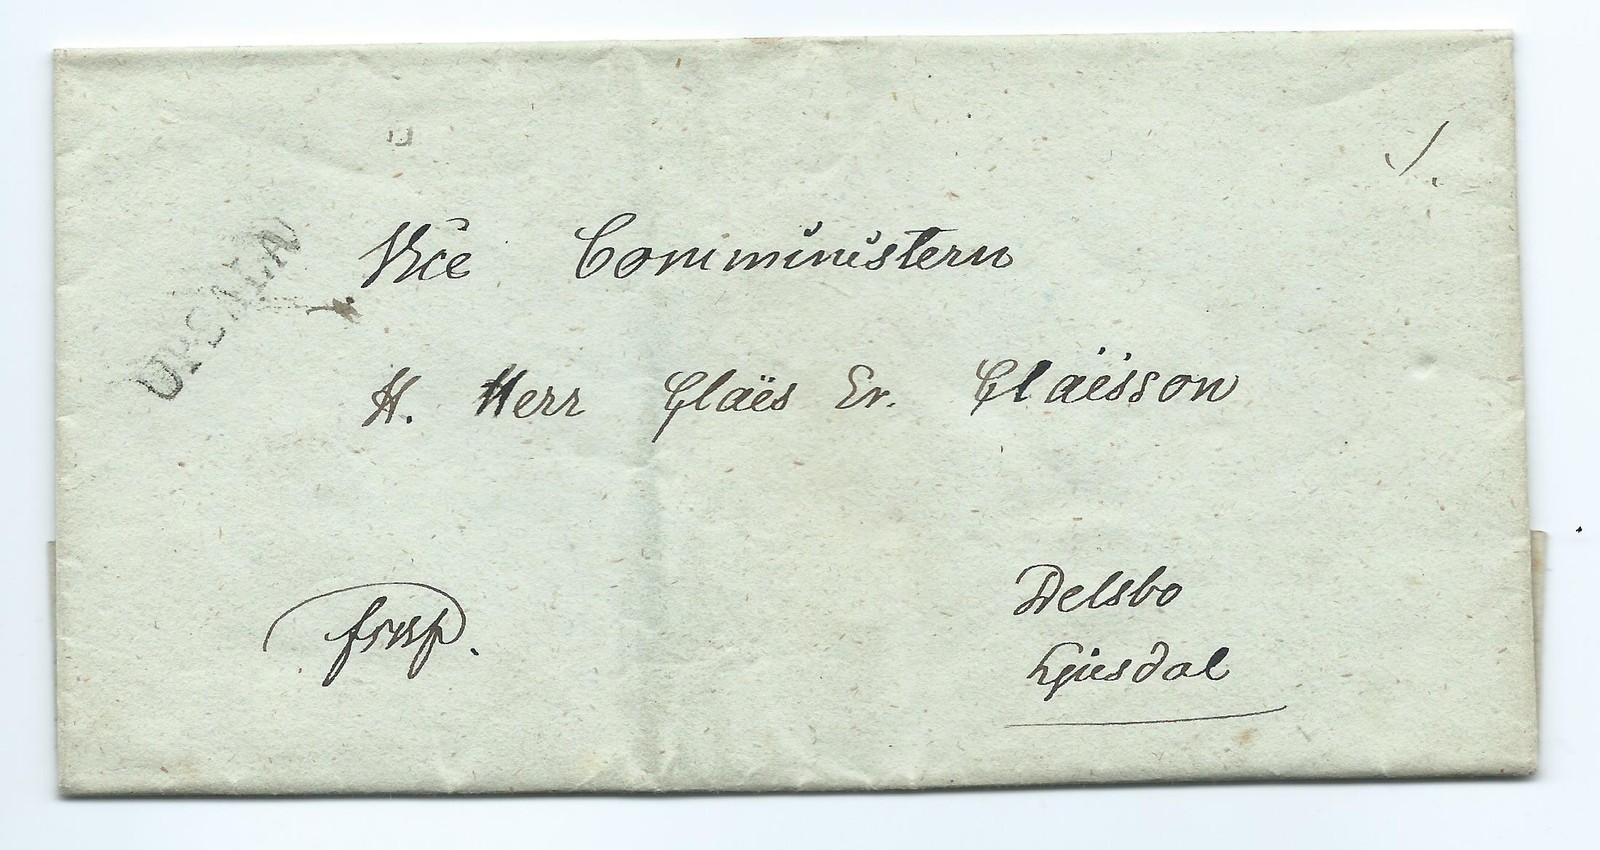 UPSALA
Vice Comministern
H. Herr Claës Er. Claësson
Delsbo
Ljusdal